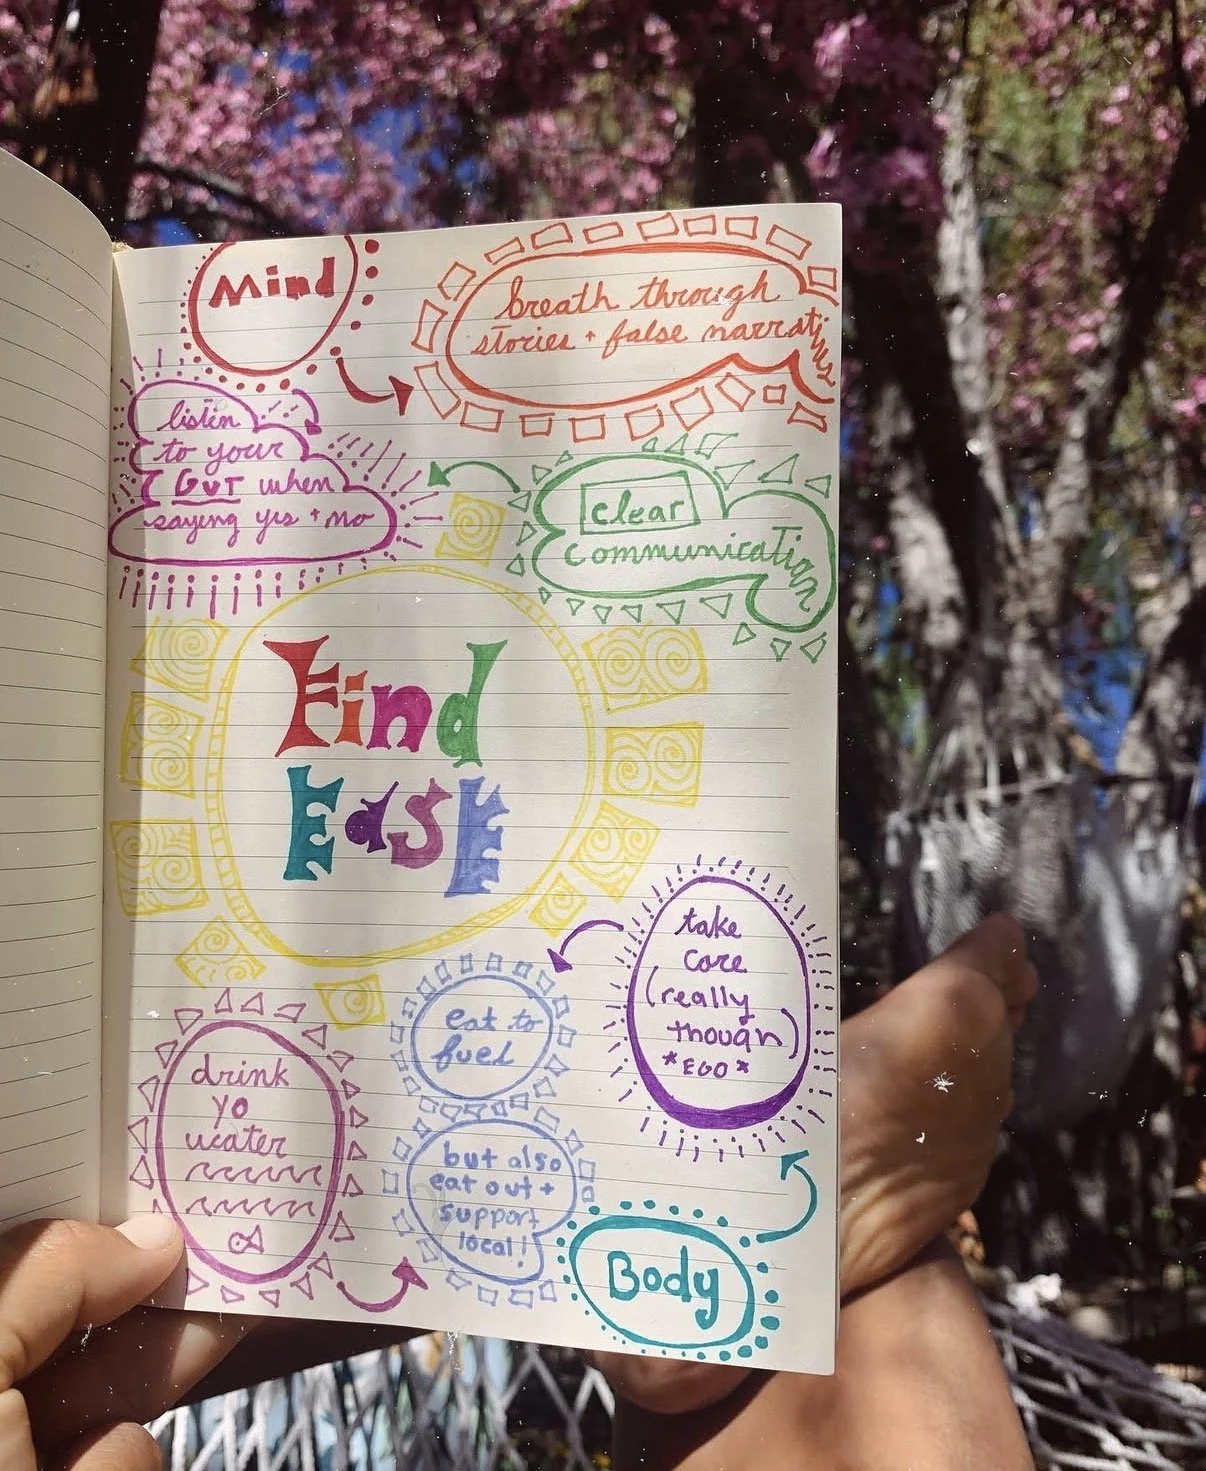 Mind
breath through
stories + false narratives
listen
to your
GUT when
saying yes + no
clear
communication
Find
EasE
take
care
(really
though)
*EGO*
eat to
fuel
drink
yo
water
but also
eat out +
support
local!
Body